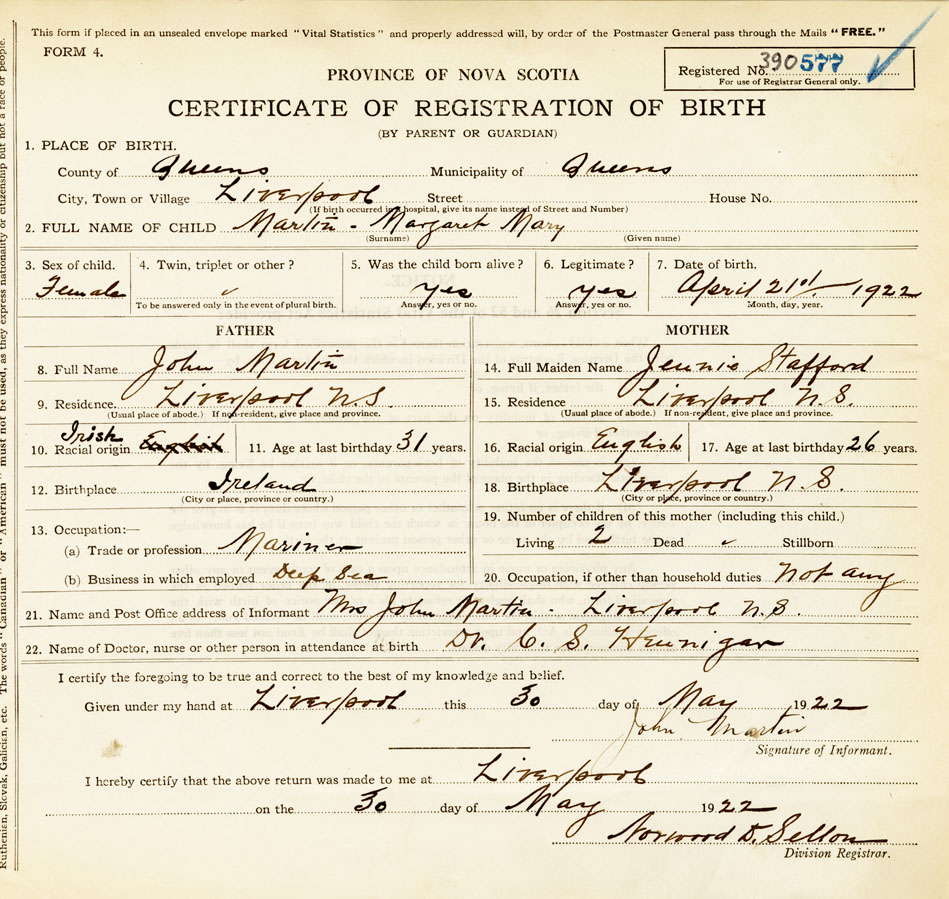 This form if placed in an unsealed envelope marked "Vital Statistics" and properly addressed will, by order of the Postmaster General pass through the Mails "FREE."
FORM 4.
Registered No. 390577
For use of Registrar General only.
PROVINCE OF NOVA SCOTIA
CERTIFICATE OF REGISTRATION OF BIRTH
(BY PARENT OR GUARDIAN)
1. PLACE OF BIRTH.
County of Queens Municipality of Queens
City, Town or Village Liverpool Street House No.
(If birth occurred in hospital, give its name instead of Street and Number)
2. FULL NAME OF CHILD Martin - Margaret Mary
(Surname) (Given name)
3. Sex of child. 4. Twin, triplet or other? 5. Was the child born alive? 6. Legitimate? 7. Date of birth.
Female " yes yes April 21st. 1922
To be answered only in the event of plural birth. Answer, yes or no. Answer, yes or no. Month, day, year.
FATHER
8. Full Name John Martin
9. Residence. Liverpool N.S.
(Usual place of abode.) If non-resident, give place and province.
Irish
10. Racial origin English 11. Age at last birthday 31 years.
12. Birthplace Ireland
(City or place, province or country.)
13. Occupation:—
(a) Trade or profession Mariner
(b) Business in which employed Deep Sea
MOTHER
14. Full Maiden Name Jennie Stafford
15. Residence Liverpool N.S.
(Usual place of abode.) If non-resident, give place and province.
16. Racial origin English 17. Age at last birthday 26 years.
18. Birthplace Liverpool N.S.
(City or place, province or country.)
19. Number of children of this mother (including this child.)
Living 2 Dead " Stillborn
20. Occupation, if other than household duties Not any
21. Name and Post Office address of Informant Mrs John Martin - Liverpool N.S.
22. Name of Doctor, nurse or other person in attendance at birth Dr. C. S. Hennigar
I certify the foregoing to be true and correct to the best of my knowledge and belief.
Given under my hand at Liverpool this 30 day of May 1922
John Martin
Signature of Informant.
I hereby certify that the above return was made to me at Liverpool
on the 30 day of May 1922
Norwood D. Sellon
Division Registrar.
Ruthenian, Slovak, Galician, etc. The words "Canadian" or "American" must not be used, as they express nationality or citizenship but not a race or people.